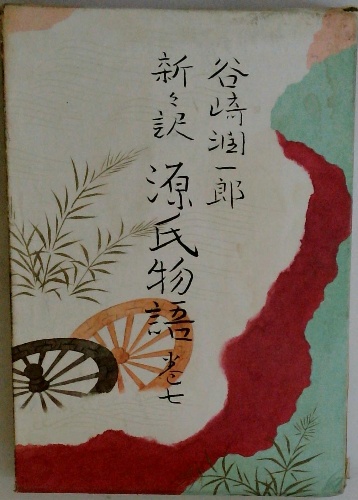 谷崎潤一郎
新々訳 源氏物語 巻七